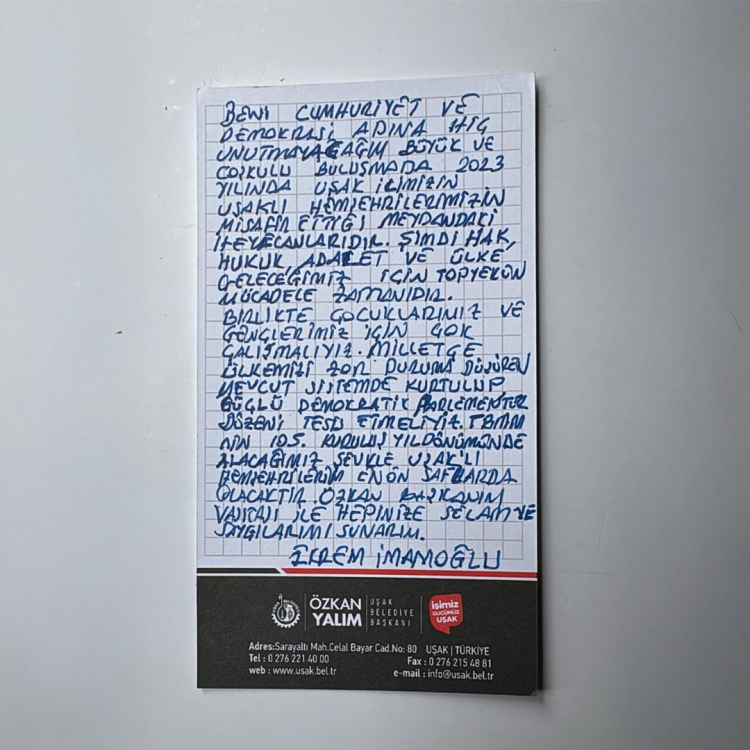 BENİ CUMHURİYET VE
DEMOKRASİ ADINA HİÇ
UNUTMAYACAĞIM BÜYÜK VE
COŞKULU BULUŞMADA 2023
YILINDA UŞAK İLİMİZİN
UŞAKLI HEMŞEHRİLERİMİZİN
MİSAFİR ETTİĞİ MEYDANDAKİ
HEYECANLARIDIR. ŞİMDİ HAK,
HUKUK, ADALET VE ÜLKE
GELECEĞİMİZ İÇİN TOPYEKÜN
MÜCADELE ZAMANIDIR.
BİRLİKTE ÇOCUKLARIMIZ VE
GENÇLERİMİZ İÇİN ÇOK
ÇALIŞMALIYIZ. MİLLETÇE
ÜLKEMİZİ ZOR DURUMA DÜŞÜREN
MEVCUT SİSTEMDE KURTULUP
GÜÇLÜ DEMOKRATİK PARLEMENTER
DÜZENİ TESİS ETMELİYİZ. TBMM
NİN 105. KURULUŞ YILDÖNÜMÜNDE
ALACAĞIMIZ ŞEVKLE UŞAK'LI
HEMŞEHRİLERİM EN ÖN SAFLARDA
OLACAKTIR ÖZKAN BAŞKANIM
VASITASI İLE HEPİNİZE SELAM VE
SAYGILARIMI SUNARIM.
EKREM İMAMOĞLU
ÖZKAN YALIM
UŞAK BELEDİYE BAŞKANI
işimiz gücümüz UŞAK
Adres:Sarayaltı Mah.Celal Bayar Cad.No: 80 UŞAK | TÜRKİYE
Tel : 0 276 221 40 00 Fax : 0 276 215 48 81
web : www.usak.bel.tr e-mail : info@usak.bel.tr